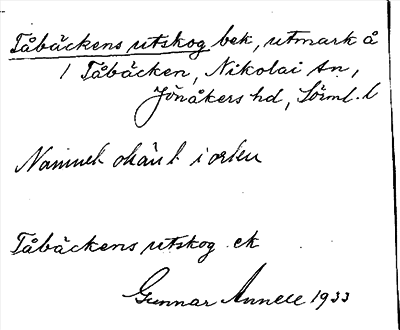 Tåbäckens utskog bek, utmark å
1 Tåbäcken, Nikolai sn,
Jönåkers hd, Sörml. l
Namnet okänt i orten
Tåbäckens utskog ek
Gunnar Annell 1933